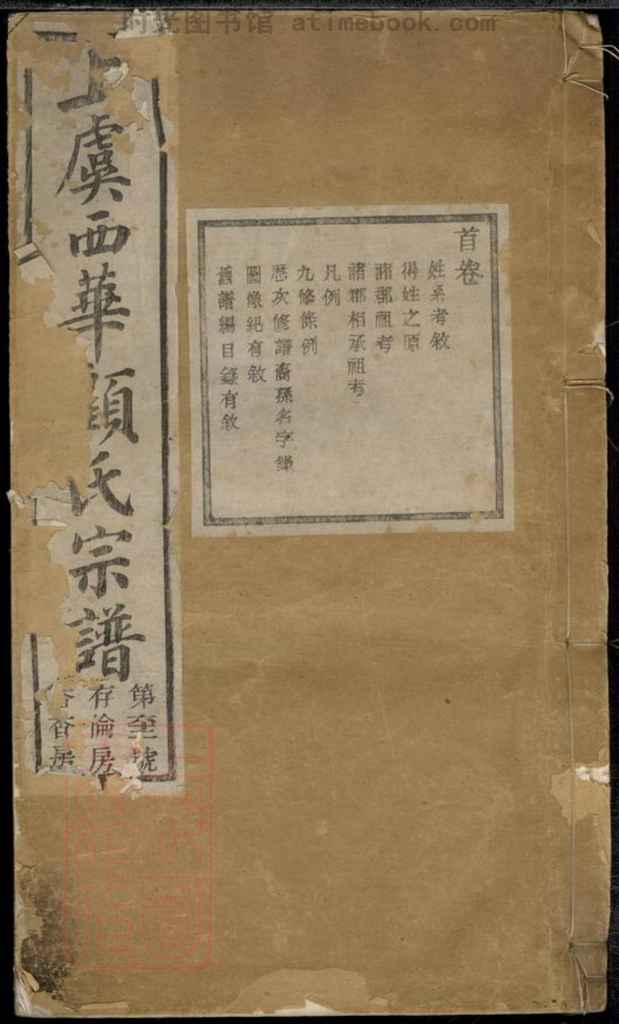 时光图书馆 atimebook.com
首卷
姓系考敘
得姓之原
諸郡祖考
諸郡相承祖考
凡例
九修條例
歷次修譜裔孫名字錄
圖像紀有敘
舊譜編目錄有敘
上虞西華顧氏宗譜
第至號
存淪房